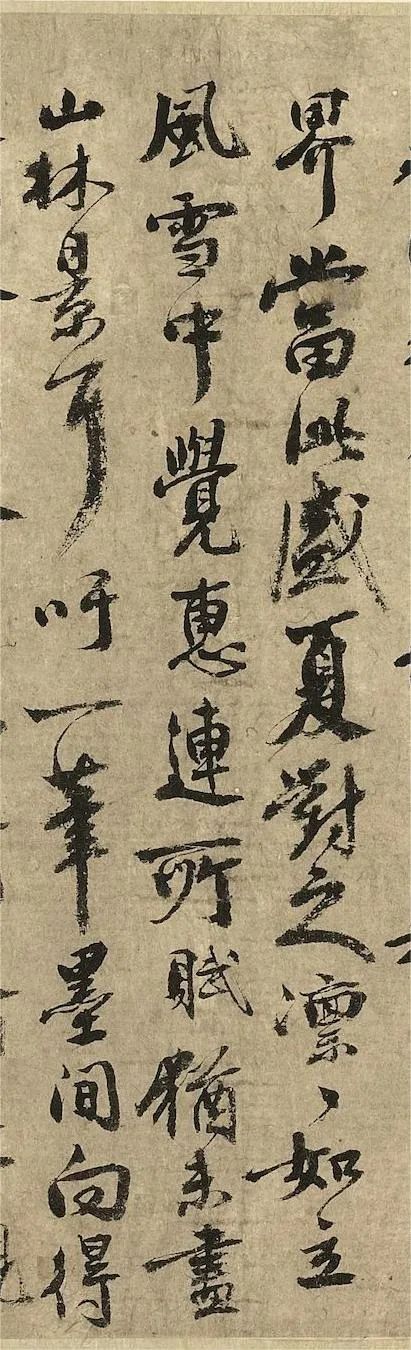 界當此盛夏對之凛〻如立
風雪中覺惠連所賦猶未盡
山林景耳吁一筆墨間向得